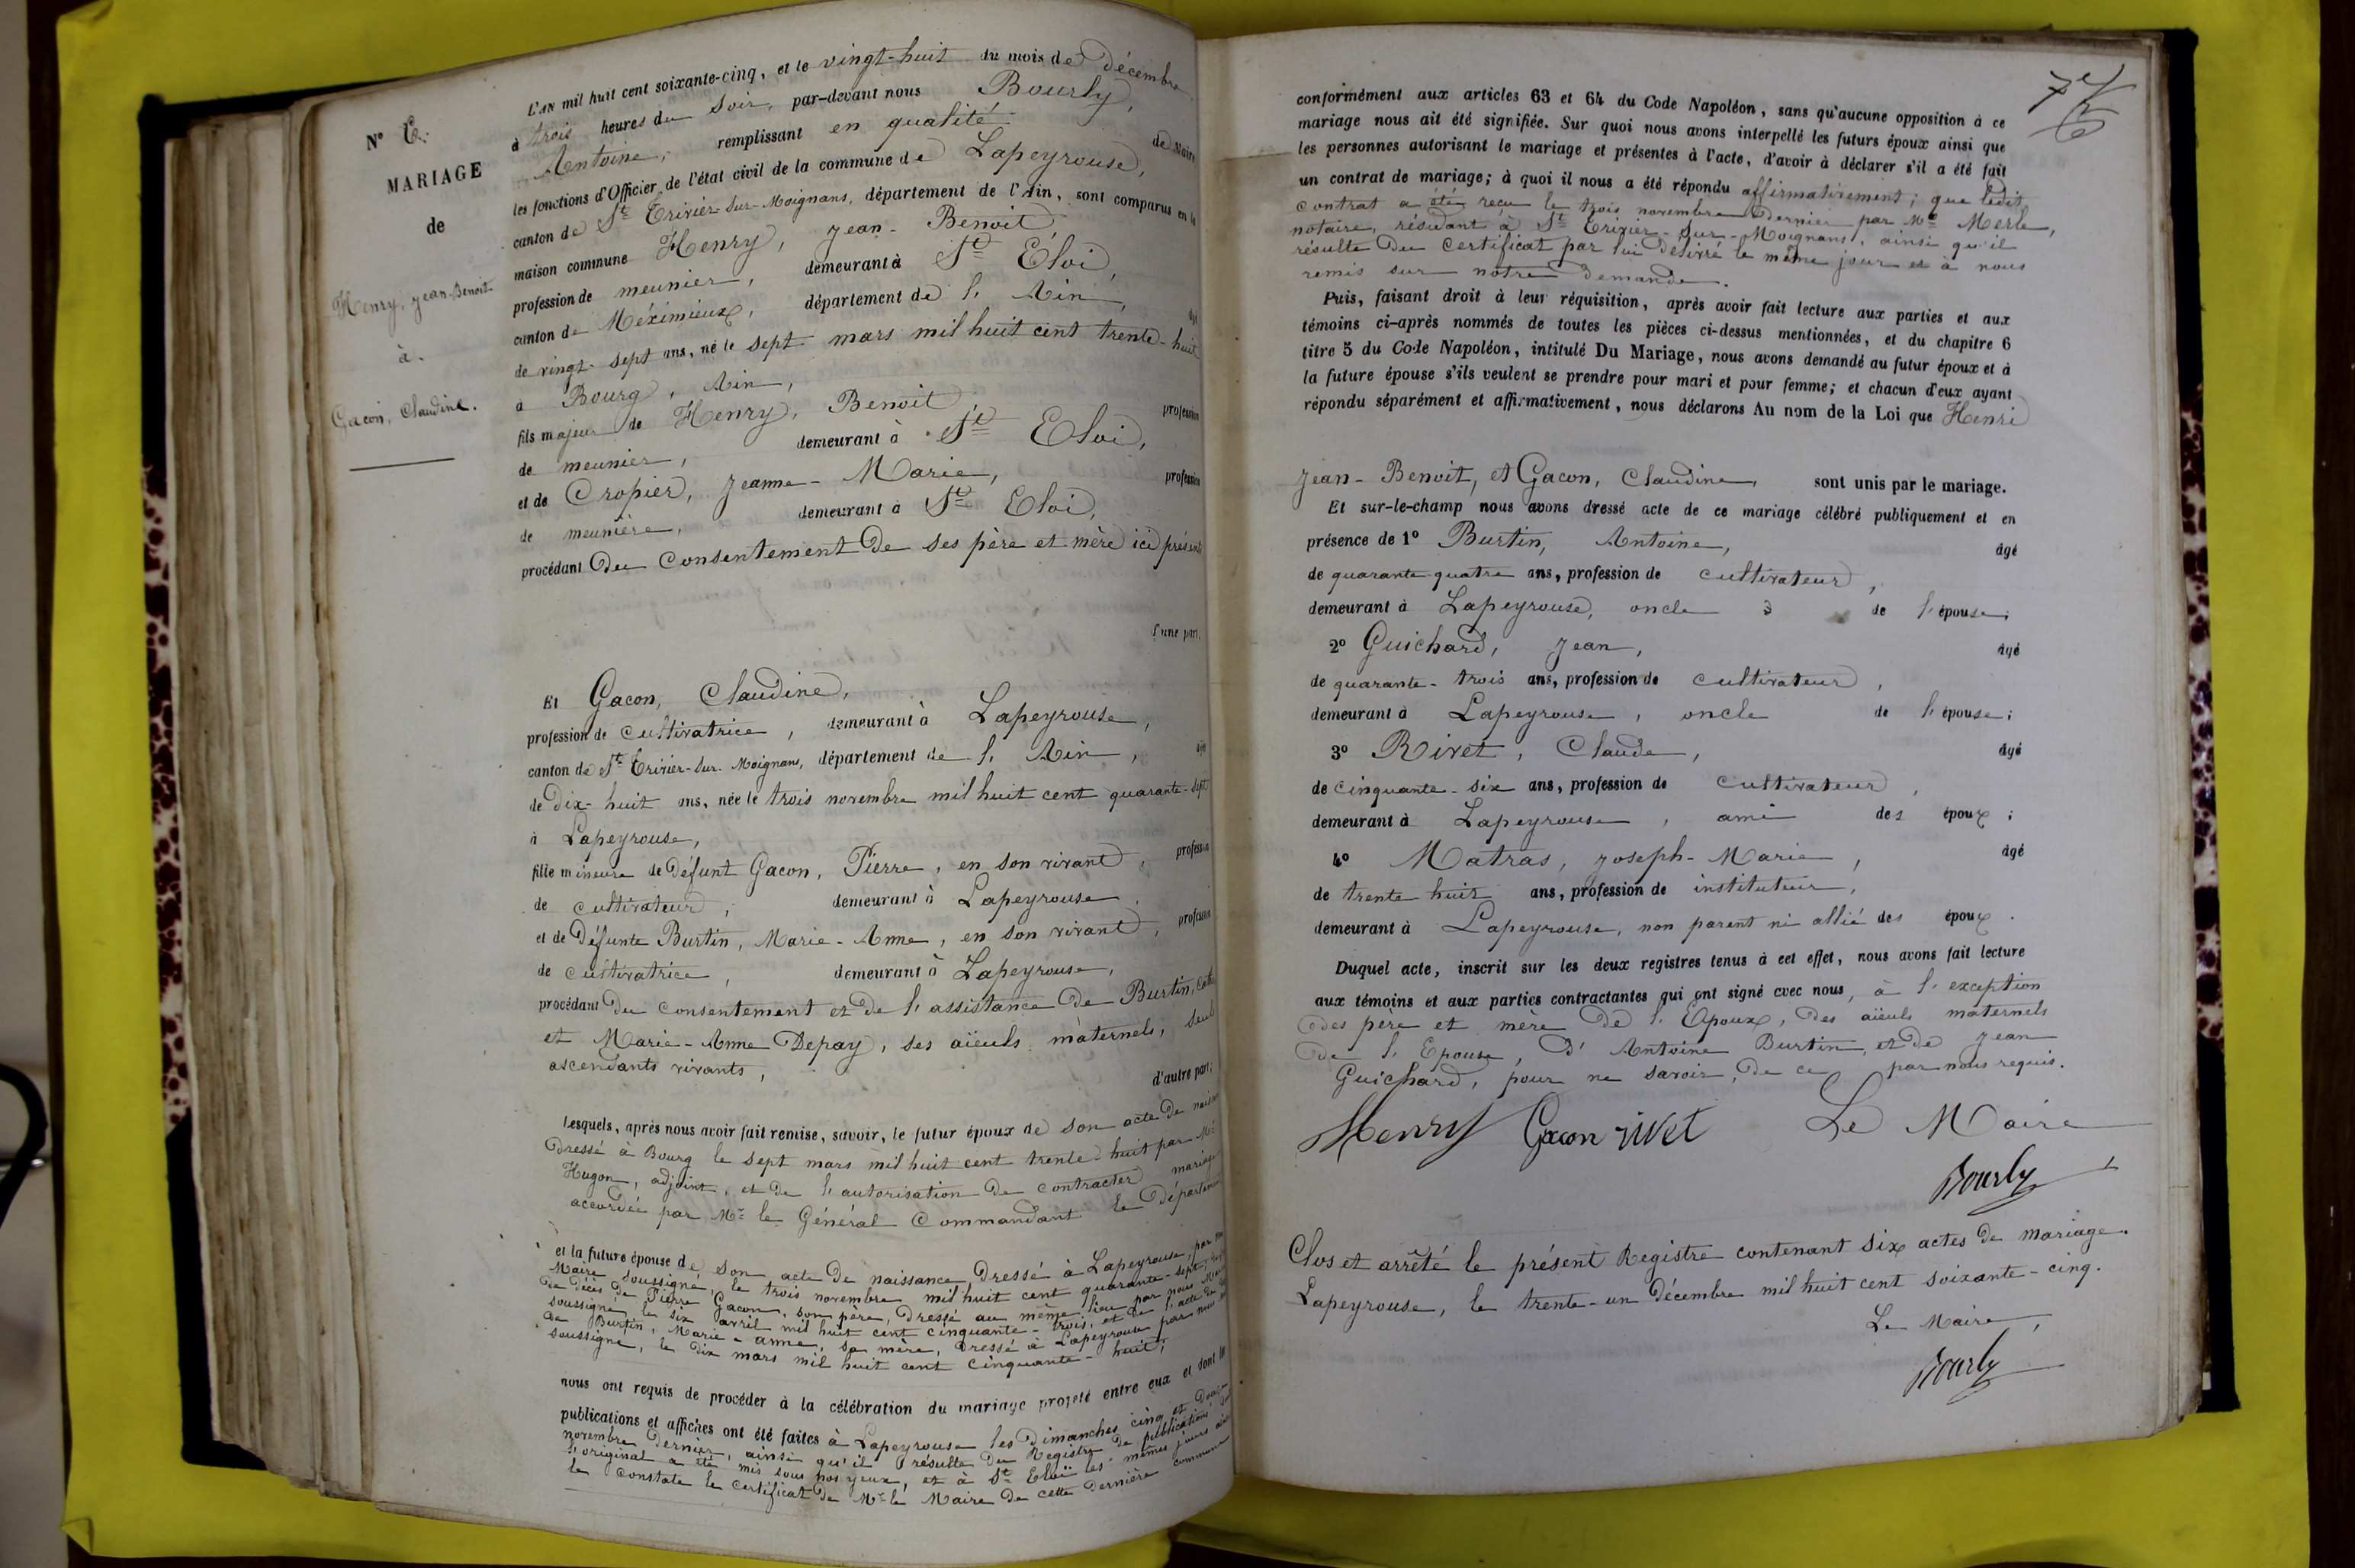 N° 6.
MARIAGE
de
Henry, Jean-Benoit
à
Gacon, Claudine.
L'AN mil huit cent soixante-cinq, et le vingt-huit du mois de décembre
à trois heures du soir, par-devant nous Bourly,
Antoine, remplissant en qualité de Maire
les fonctions d'Officier de l'état civil de la commune de Lapeyrouse,
canton de St Trivier-sur-Moignans, département de l'Ain, sont comparus en la
maison commune Henry, Jean-Benoit,
profession de meunier, demeurant à Ste Éloi,
canton de Méximieux, département de l'Ain, âgé
de vingt-sept ans, né le sept mars mil huit cent trente-huit
à Bourg, Ain,
fils majeur de Henry, Benoit profession
de meunier, demeurant à Ste Eloi,
et de Cropier, Jeanne-Marie, profession
de meunière, demeurant à Ste Eloi,
procédant du consentement de ses père et mère ici présents
d'une part,
Et Gacon, Claudine,
profession de cultivatrice, demeurant à Lapeyrouse,
canton de St Trivier-sur-Moignans, département de l'Ain, âgée
de dix-huit ans, née le trois novembre mil huit cent quarante-sept
à Lapeyrouse,
fille mineure de défunt Gacon, Pierre, en son vivant, profession
de cultivateur, demeurant à Lapeyrouse,
et de défunte Burtin, Marie-Anne, en son vivant, profession
de cultivatrice, demeurant à Lapeyrouse,
procédant du consentement et de l'assistance de Burtin,
et Marie-Anne Depay, ses aïeuls maternels, seuls
ascendants vivants,
d'autre part,
Lesquels, après nous avoir fait remise, savoir, le futur époux de son acte de
dressé à Bourg le sept mars mil huit cent trente-huit par Mr
Hugon, adjoint, et de l'autorisation de contracter mariage
accordée par Mr le Général Commandant le Département
et la future épouse de son acte de naissance, dressé à Lapeyrouse, par
Maire soussigné, le trois novembre mil huit cent quarante-sept,
de décès de Pierre Gacon, son père, dressé au même lieu par nous Maire
soussigné, le six avril mil huit cent cinquante-trois, et de l'acte de
de Burtin, Marie-anne, sa mère, dressé à Lapeyrouse par nous
soussigné, le dix mars mil huit cent cinquante-huit,
nous ont requis de procéder à la célébration du mariage projeté entre eux et dont les
publications et affiches ont été faites à Lapeyrouse les dimanches cinq et douze
novembre dernier, ainsi qu'il résulte du Registre de publications dont
l'original a été mis sous nos yeux, et à Ste Eloi les mêmes jours ainsi
le constate le certificat de Mr le Maire de cette dernière commune
conformément aux articles 63 et 64 du Code Napoléon, sans qu'aucune opposition à ce
mariage nous ait été signifiée. Sur quoi nous avons interpellé les futurs époux ainsi que
les personnes autorisant le mariage et présentes à l'acte, d'avoir à déclarer s'il a été fait
un contrat de mariage; à quoi il nous a été répondu affirmativement; que ledit
contrat a été reçu le trois novembre dernier par Me Merle,
notaire, résidant à St Trivier-sur-Moignans, ainsi qu'il
résulte du certificat par lui délivré le même jour et à nous
remis sur notre demande.
Puis, faisant droit à leur réquisition, après avoir fait lecture aux parties et aux
témoins ci-après nommés de toutes les pièces ci-dessus mentionnées, et du chapitre 6
titre 5 du Code Napoléon, intitulé Du Mariage, nous avons demandé au futur époux et à
la future épouse s'ils veulent se prendre pour mari et pour femme; et chacun d'eux ayant
répondu séparément et affirmativement, nous déclarons Au nom de la Loi que Henri
Jean-Benoit, et Gacon, Claudine, sont unis par le mariage.
Et sur-le-champ nous avons dressé acte de ce mariage célébré publiquement et en
présence de 1° Burtin, Antoine, âgé
de quarante-quatre ans, profession de cultivateur,
demeurant à Lapeyrouse, oncle de l'épouse;
2° Guichard, Jean, âgé
de quarante-trois ans, profession de cultivateur,
demeurant à Lapeyrouse, oncle de l'épouse;
3° Rivet, Claude, âgé
de cinquante-six ans, profession de cultivateur,
demeurant à Lapeyrouse, ami des époux;
4° Matras, Joseph-Marie, âgé
de trente huit ans, profession de instituteur,
demeurant à Lapeyrouse, non parent ni allié des époux.
Duquel acte, inscrit sur les deux registres tenus à cet effet, nous avons fait lecture
aux témoins et aux parties contractantes qui ont signé avec nous, à l'exception
des père et mère de l'Epoux, des aïeuls maternels
de l'Epouse, d'Antoine Burtin, et de Jean
Guichard, pour ne savoir, de ce par nous requis.
Henry Gacon rivet Le Maire
Bourly
Clos et arrêté le présent Registre contenant six actes de mariage.
Lapeyrouse, le trente-un décembre mil huit cent soixante-cinq.
Le Maire,
Bourly